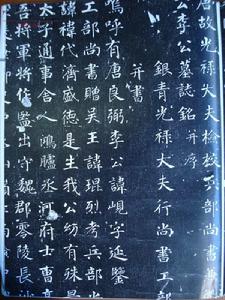 唐故光祿大夫檢校兵部尚書兼
公李公墓誌銘并序
銀青光祿大夫行尚書工部
并書
嗚呼有唐良弼李公諱峴字延鑒
工部尚書贈吳王諱琨烈考兵部尚
諱禕代濟盛德是生我公幼有殊
太子通事舍人鴻臚丞河府士曹高
吾將軍將作監出守魏郡零陵長沙